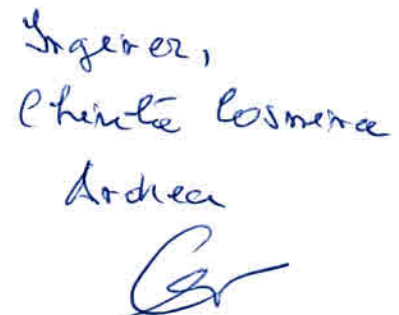 Inginer,
Chiriță Cosmina
Andreea